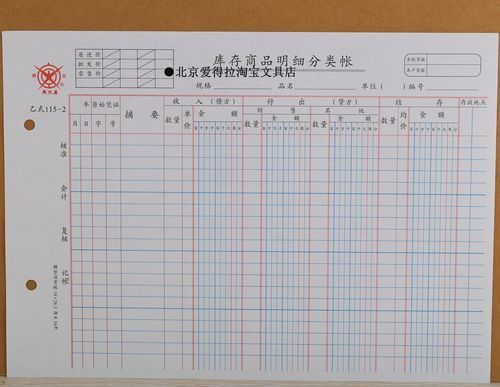 原进价
批发价
零售价
库存商品明细分类帐
●北京爱得拉淘宝文具店
本帐页数
本户页数
规格 品名 单位( )编号
乙式115-2
年 原始凭证 摘要 收入(借方) 付出(贷方) 结存 存放地点
数量 单价 金额 销售 其他 数量 均价 金额
月 日 字 号 数量 金额 数量 金额
核准
会计
复核
记帐